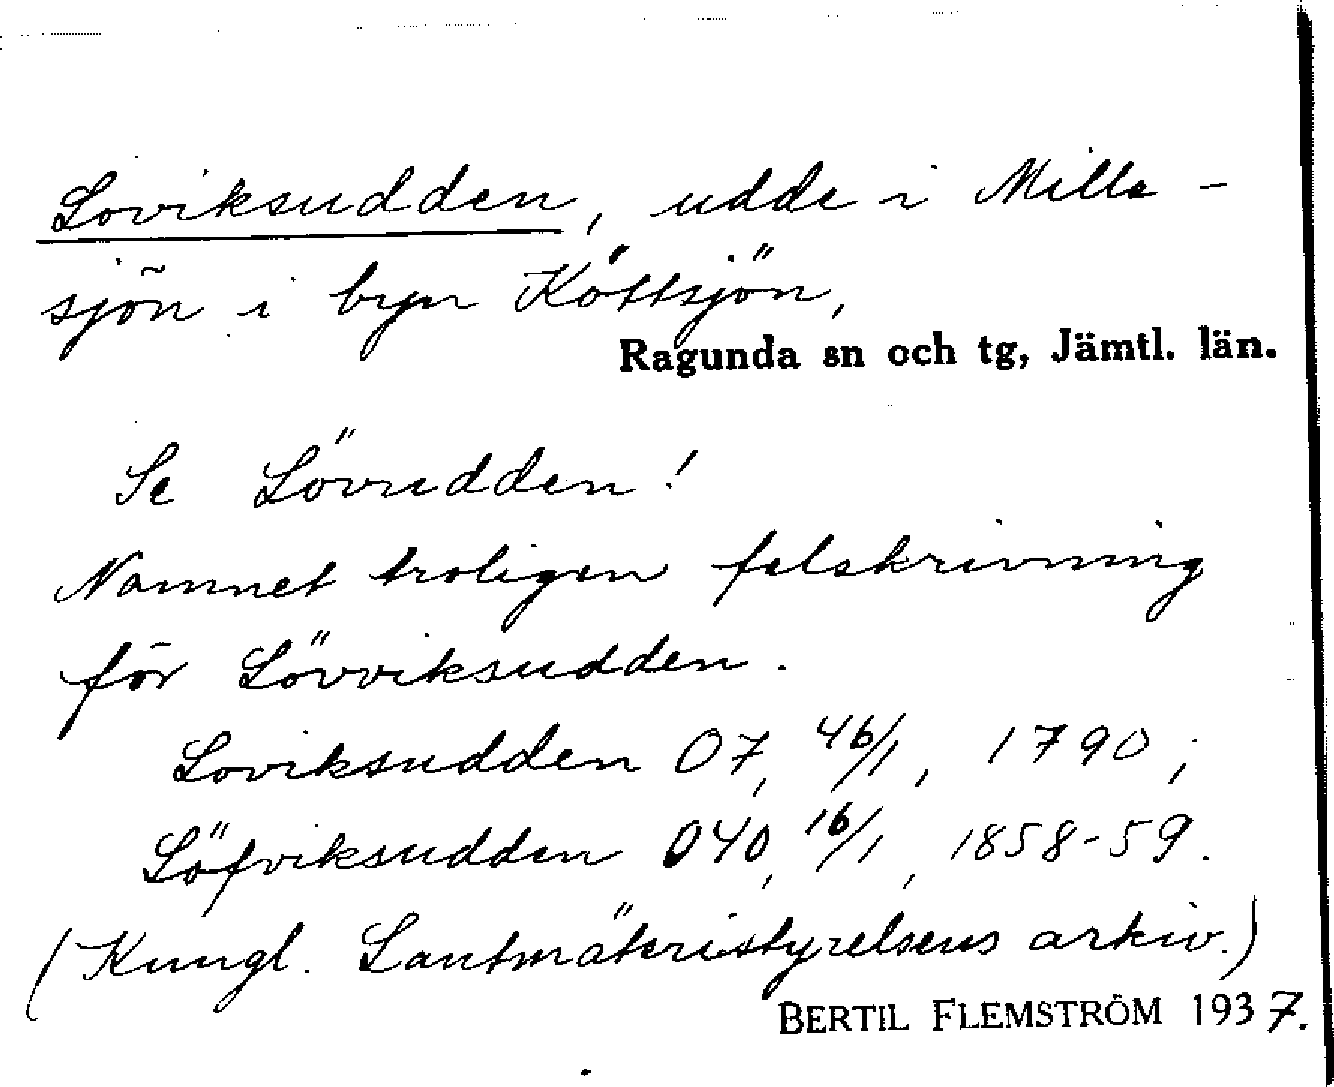 Loviksudden, udde i Mille-
sjön i byn Köttsjön,
Ragunda sn och tg, Jämtl. län.
Se Lövudden!
Namnet troligen felskrivning
för Lövviksudden.
Loviksudden O7, 46/1, 1790;
Löfviksudden O40, 16/1, 1858-59.
(Kungl. Lantmäteristyrelsens arkiv.)
BERTIL FLEMSTRÖM 1937.